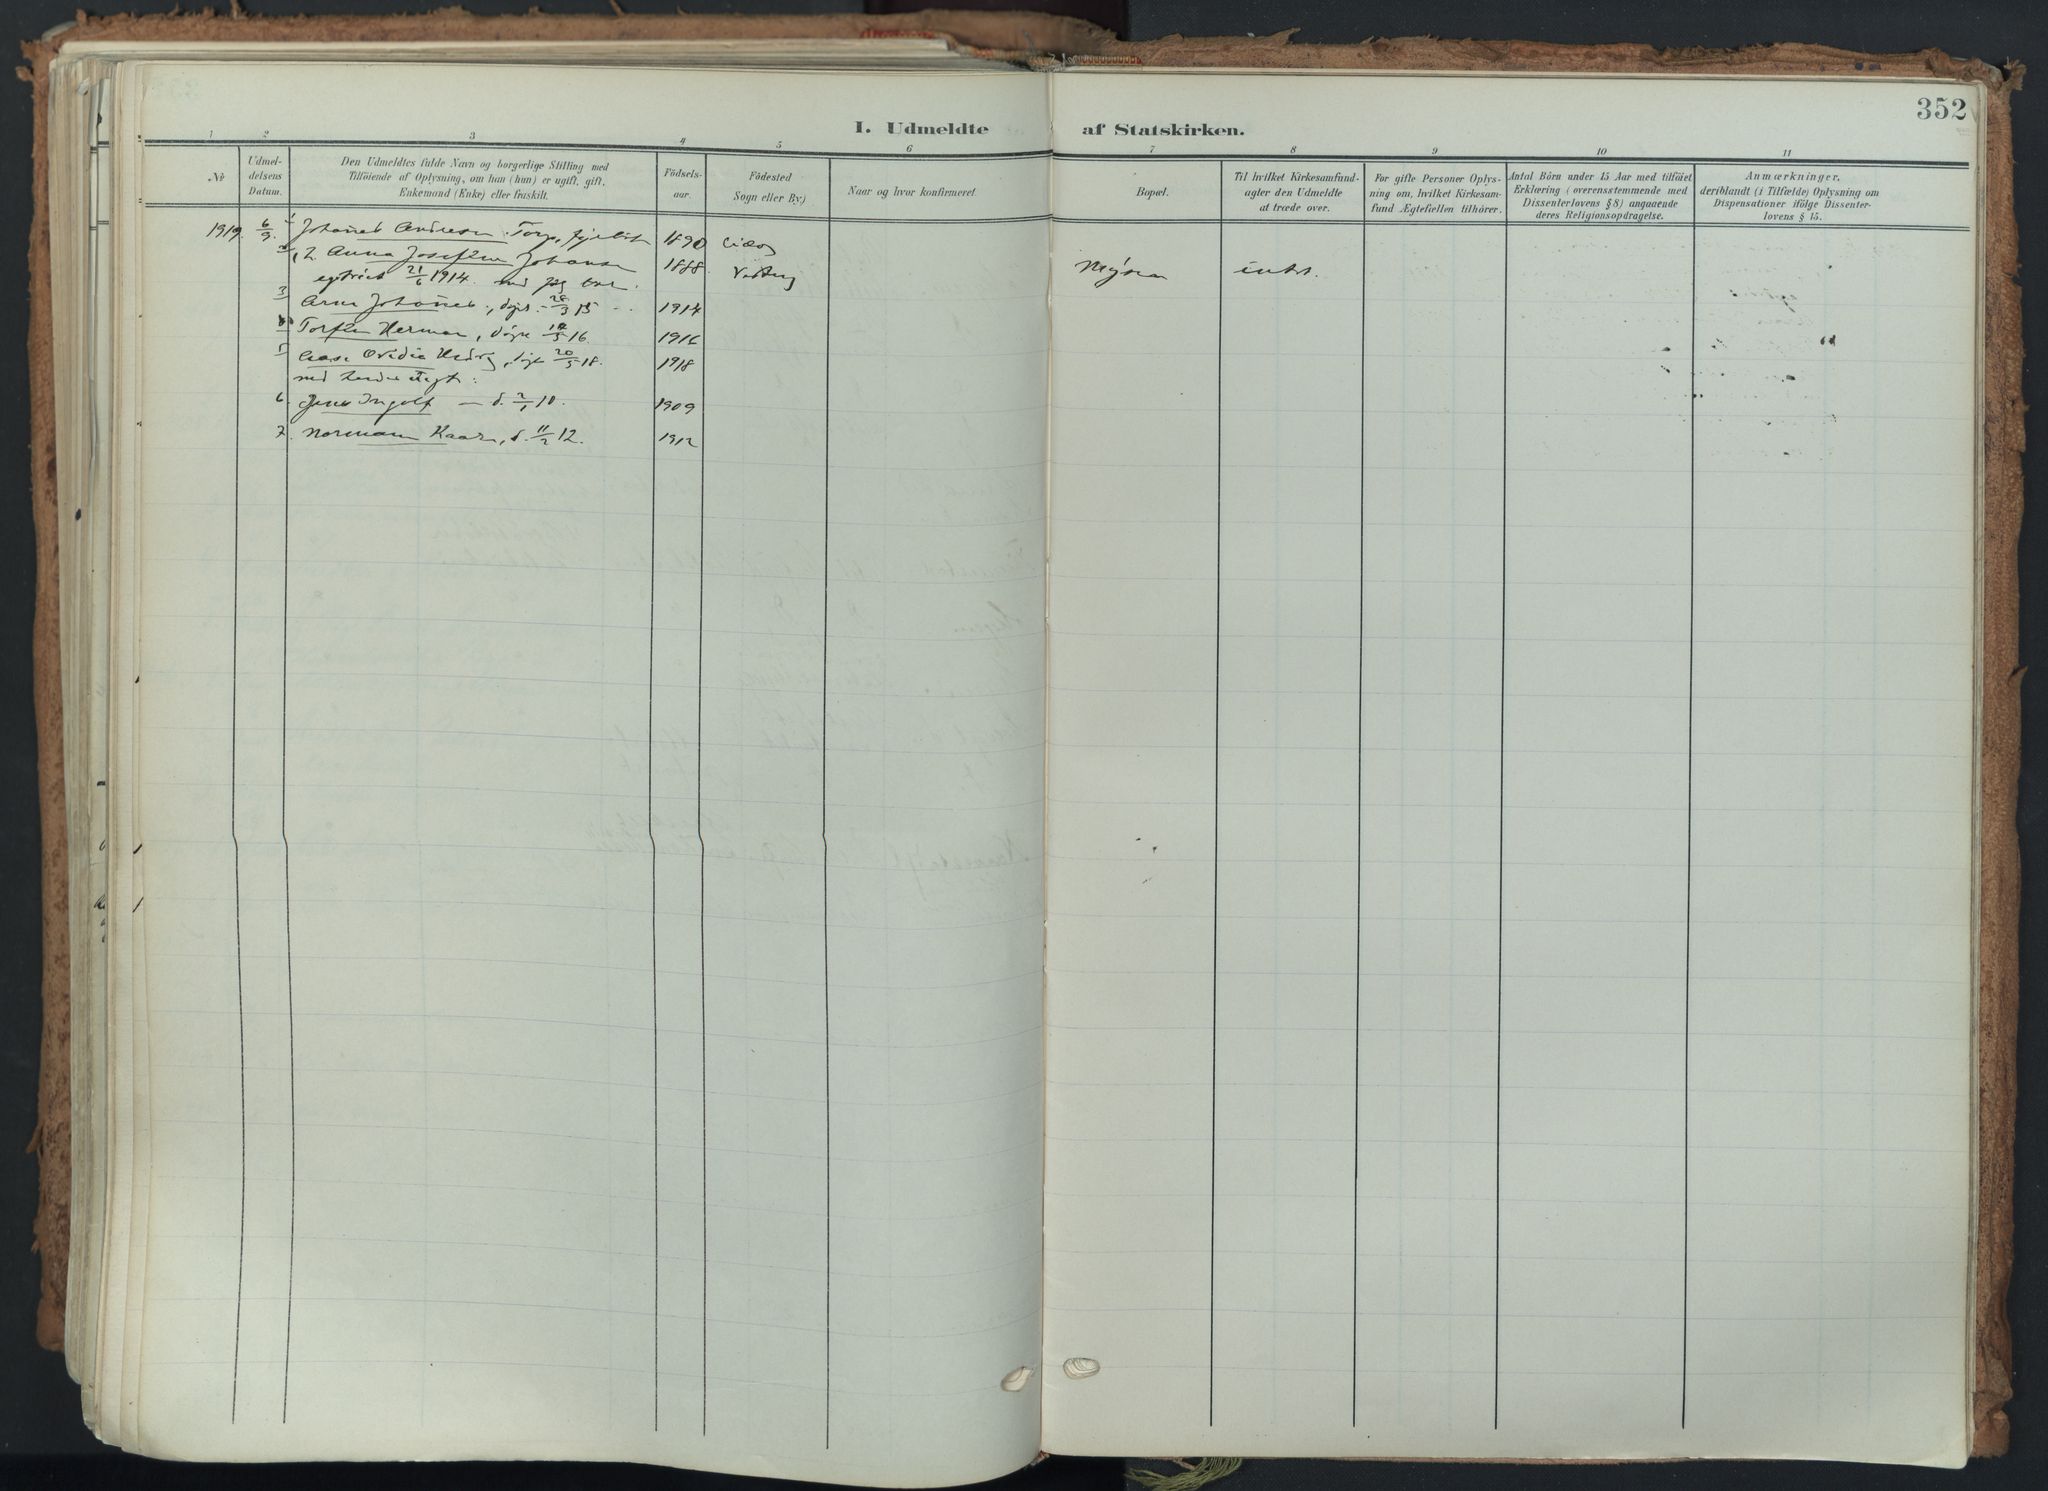 352
I. Udmeldte af Statskirken.
1 2 3 4 5 6 7 8 9 10 11
No
Udmeldelsens Datum.
Den Udmeldtes fulde Navn og borgerlige Stilling med
Tilföiende af Oplysning, om han (hun) er ugift, gift,
Enkemand (Enke) eller fraskilt.
Födselsaar.
Födested
Sogn eller By.)
Naar og hvor konfirmeret.
Bopæl.
Til hvilket Kirkesamfund
agter den Udmeldte
at træde over.
For gifte Personer Oplysning
om, hvilket Kirkesamfund
Ægtefællen tilhörer.
Antal Börn under 15 Aar med tilföiet
Erklæring (overensstemmende med
Dissenterlovens § 8) angaaende
deres Religionsopdragelse.
Anmærkninger,
deriblandt (i Tilfælde) Oplysning om
Dispensationer ifölge Dissenterlovens
§ 15.
1919 6/9 1 Johannes Andresen Torp, 1890
2. Anna Josefine Johansen 1888 Mysen intet.
21/6 1914.
3 Arne Johannes, 28/3 15 1914
4 Torstein Herman, døpt 14/5 16 1916
5 Ovidia 20/5 18. 1918
6. Jens Ingolf d. 2/1 10. 1909
7. Norman Kaare, d. 11/2 12. 1912